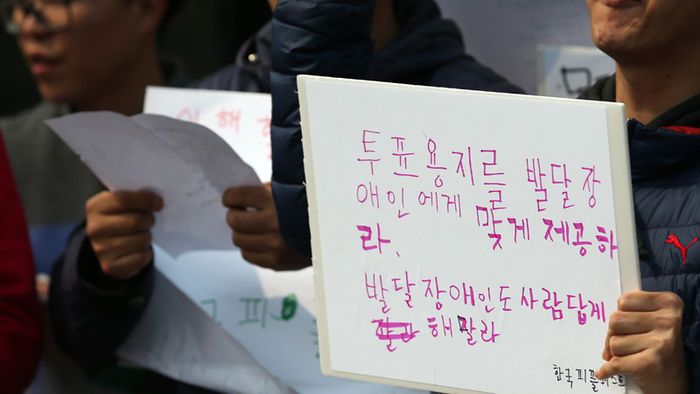 투표용지를 발달장
애인에게 맞게 제공하
라.
발달장애인도 사람답게
해달라
한국피플퍼스트